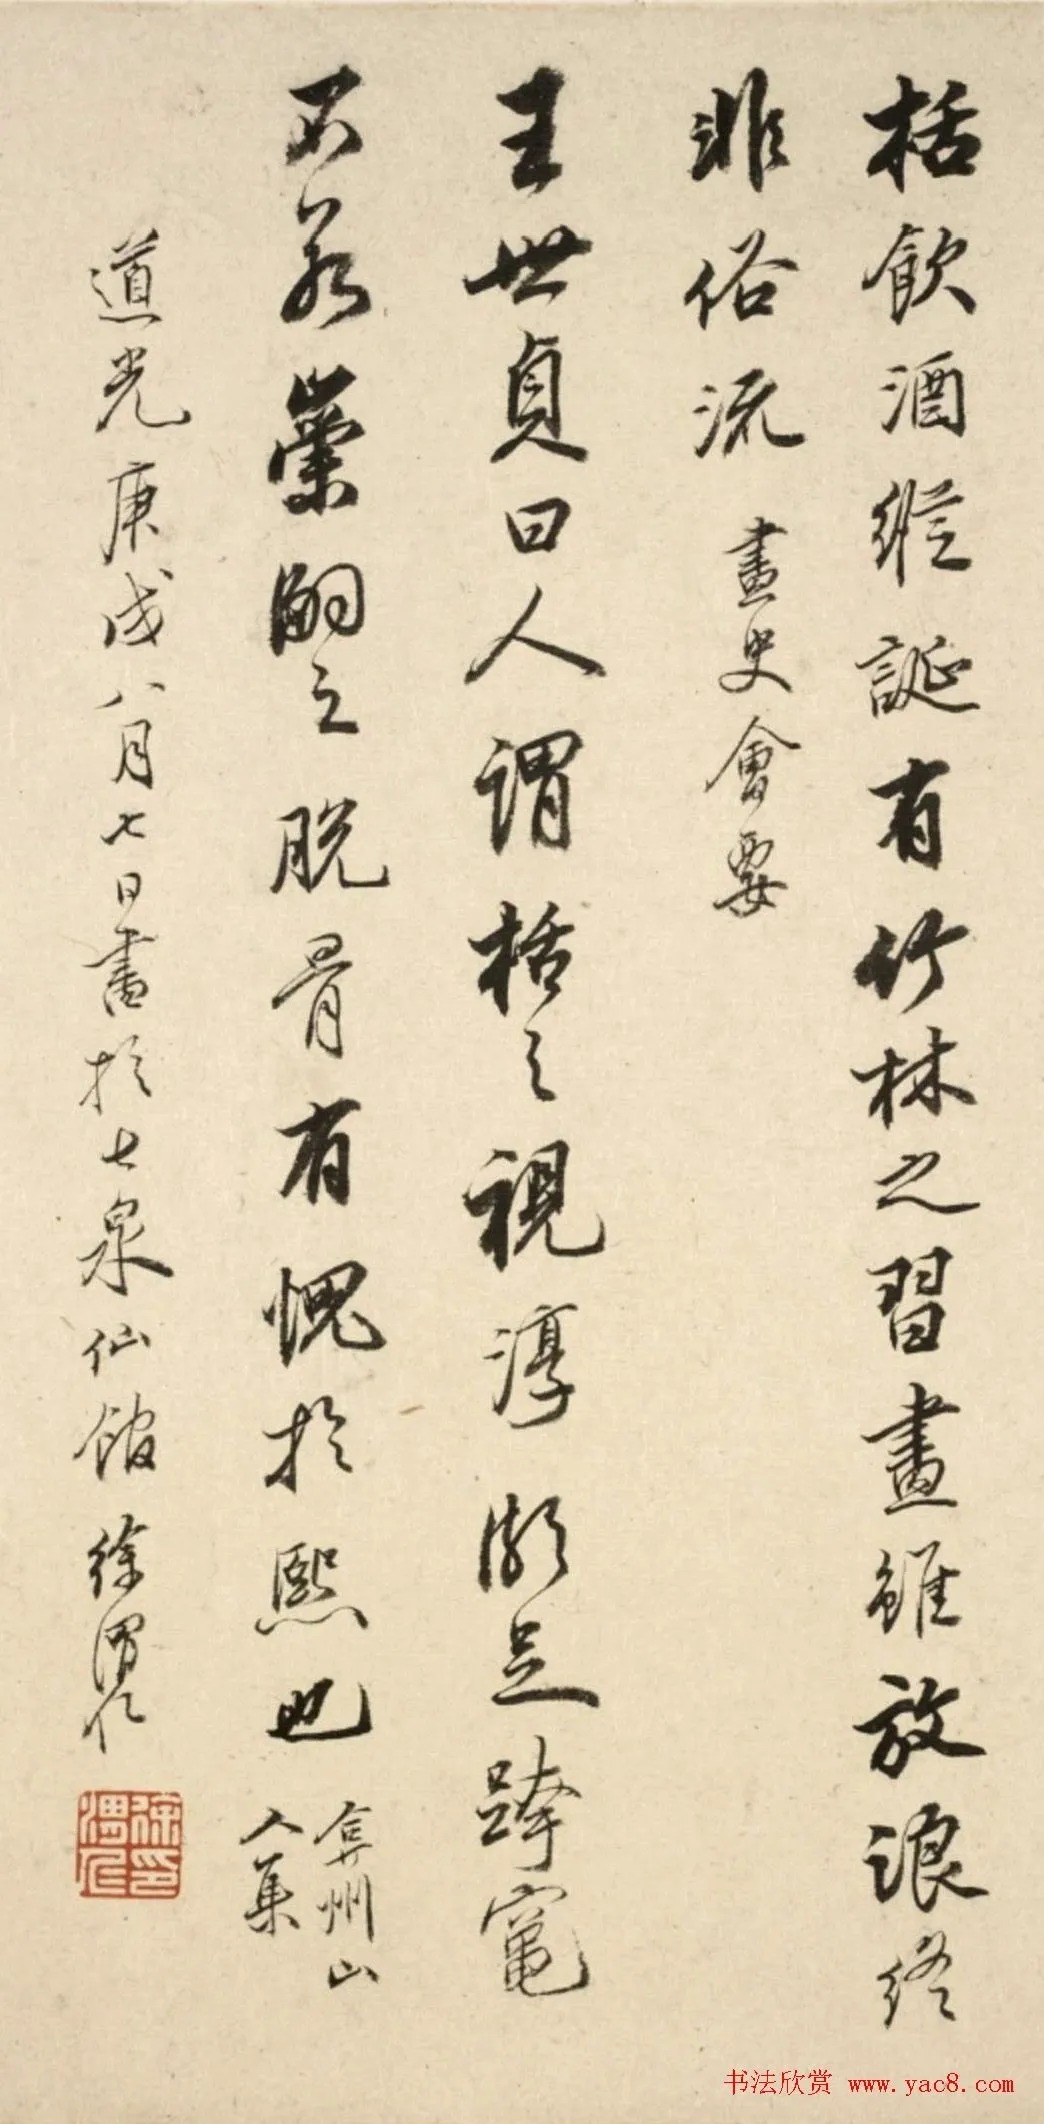 栝飲酒縱誕有竹林之習畫雖放浪終
非俗流 畫史會要
王世貞曰人謂栝之視淳頗足跨竈
不若崇嗣之脫骨有愧於熙也 弇州山
人集
道光庚戌八月七日書於七泉仙館 徐渭仁
徐渭仁印
书法欣赏 www.yac8.com